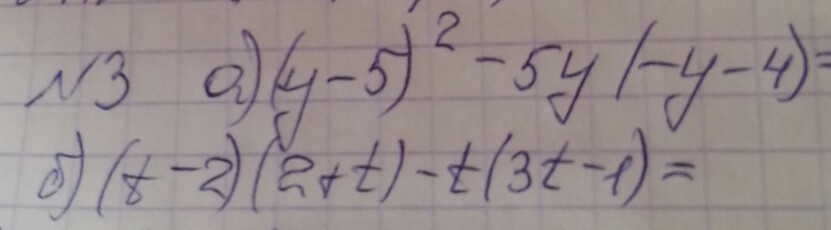 №3 а) (y-5)² - 5y (-y-4)=
б) (t-2)(2+t) - t(3t-1)=